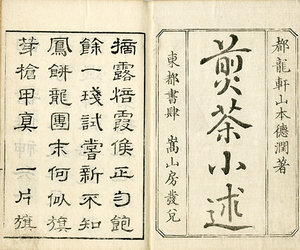 都龍軒山本德潤著
煎茶小述
東都書肆 嵩山房發兌
摘露焙霞候正勻飽
餘一琖試嘗新不知
鳳餅龍團末何似旗
芽槍甲真 一片旗